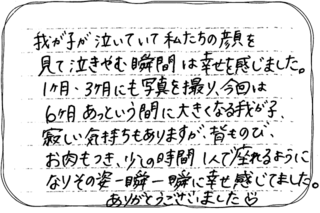 我が子が泣いていて私たちの顔を
見て泣きやむ瞬間は幸せを感じました。
1ヶ月・3ヶ月にも写真を撮り、今回は
6ヶ月あっという間に大きくなる我が子、
寂しい気持ちもありますが、背ものび、
お肉もつき、少しの時間1人で座れるように
なりその姿一瞬一瞬に幸せ感じてました。
ありがとうございました☺